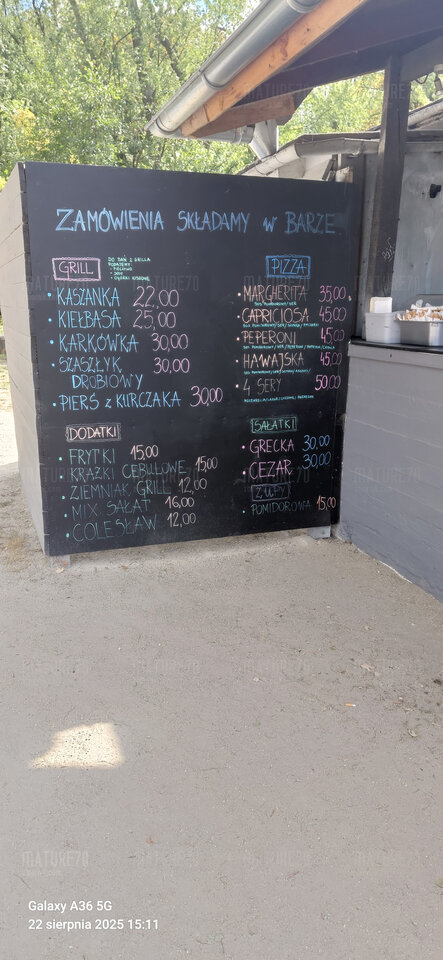 ZAMÓWIENIA SKŁADAMY W BARZE
GRILL
DO DAŃ Z GRILLA
KASZANKA 22,00
KIEŁBASA 25,00
KARKÓWKA 30,00
SZASZŁYK DROBIOWY 30,00
PIERŚ Z KURCZAKA 30,00
DODATKI
FRYTKI 15,00
KRĄŻKI CEBULOWE 15,00
ZIEMNIAK GRILL 12,00
MIX SAŁAT 16,00
COLESŁAW 12,00
PIZZA
MARGHERITA 35,00
CAPRICIOSA 45,00
PEPERONI 45,00
HAWAJSKA 45,00
4 SERY 50,00
SAŁATKI
GRECKA 30,00
CEZAR 30,00
ZUPY
POMIDOROWA 15,00
MATURE70
Galaxy A36 5G
22 sierpnia 2025 15:11